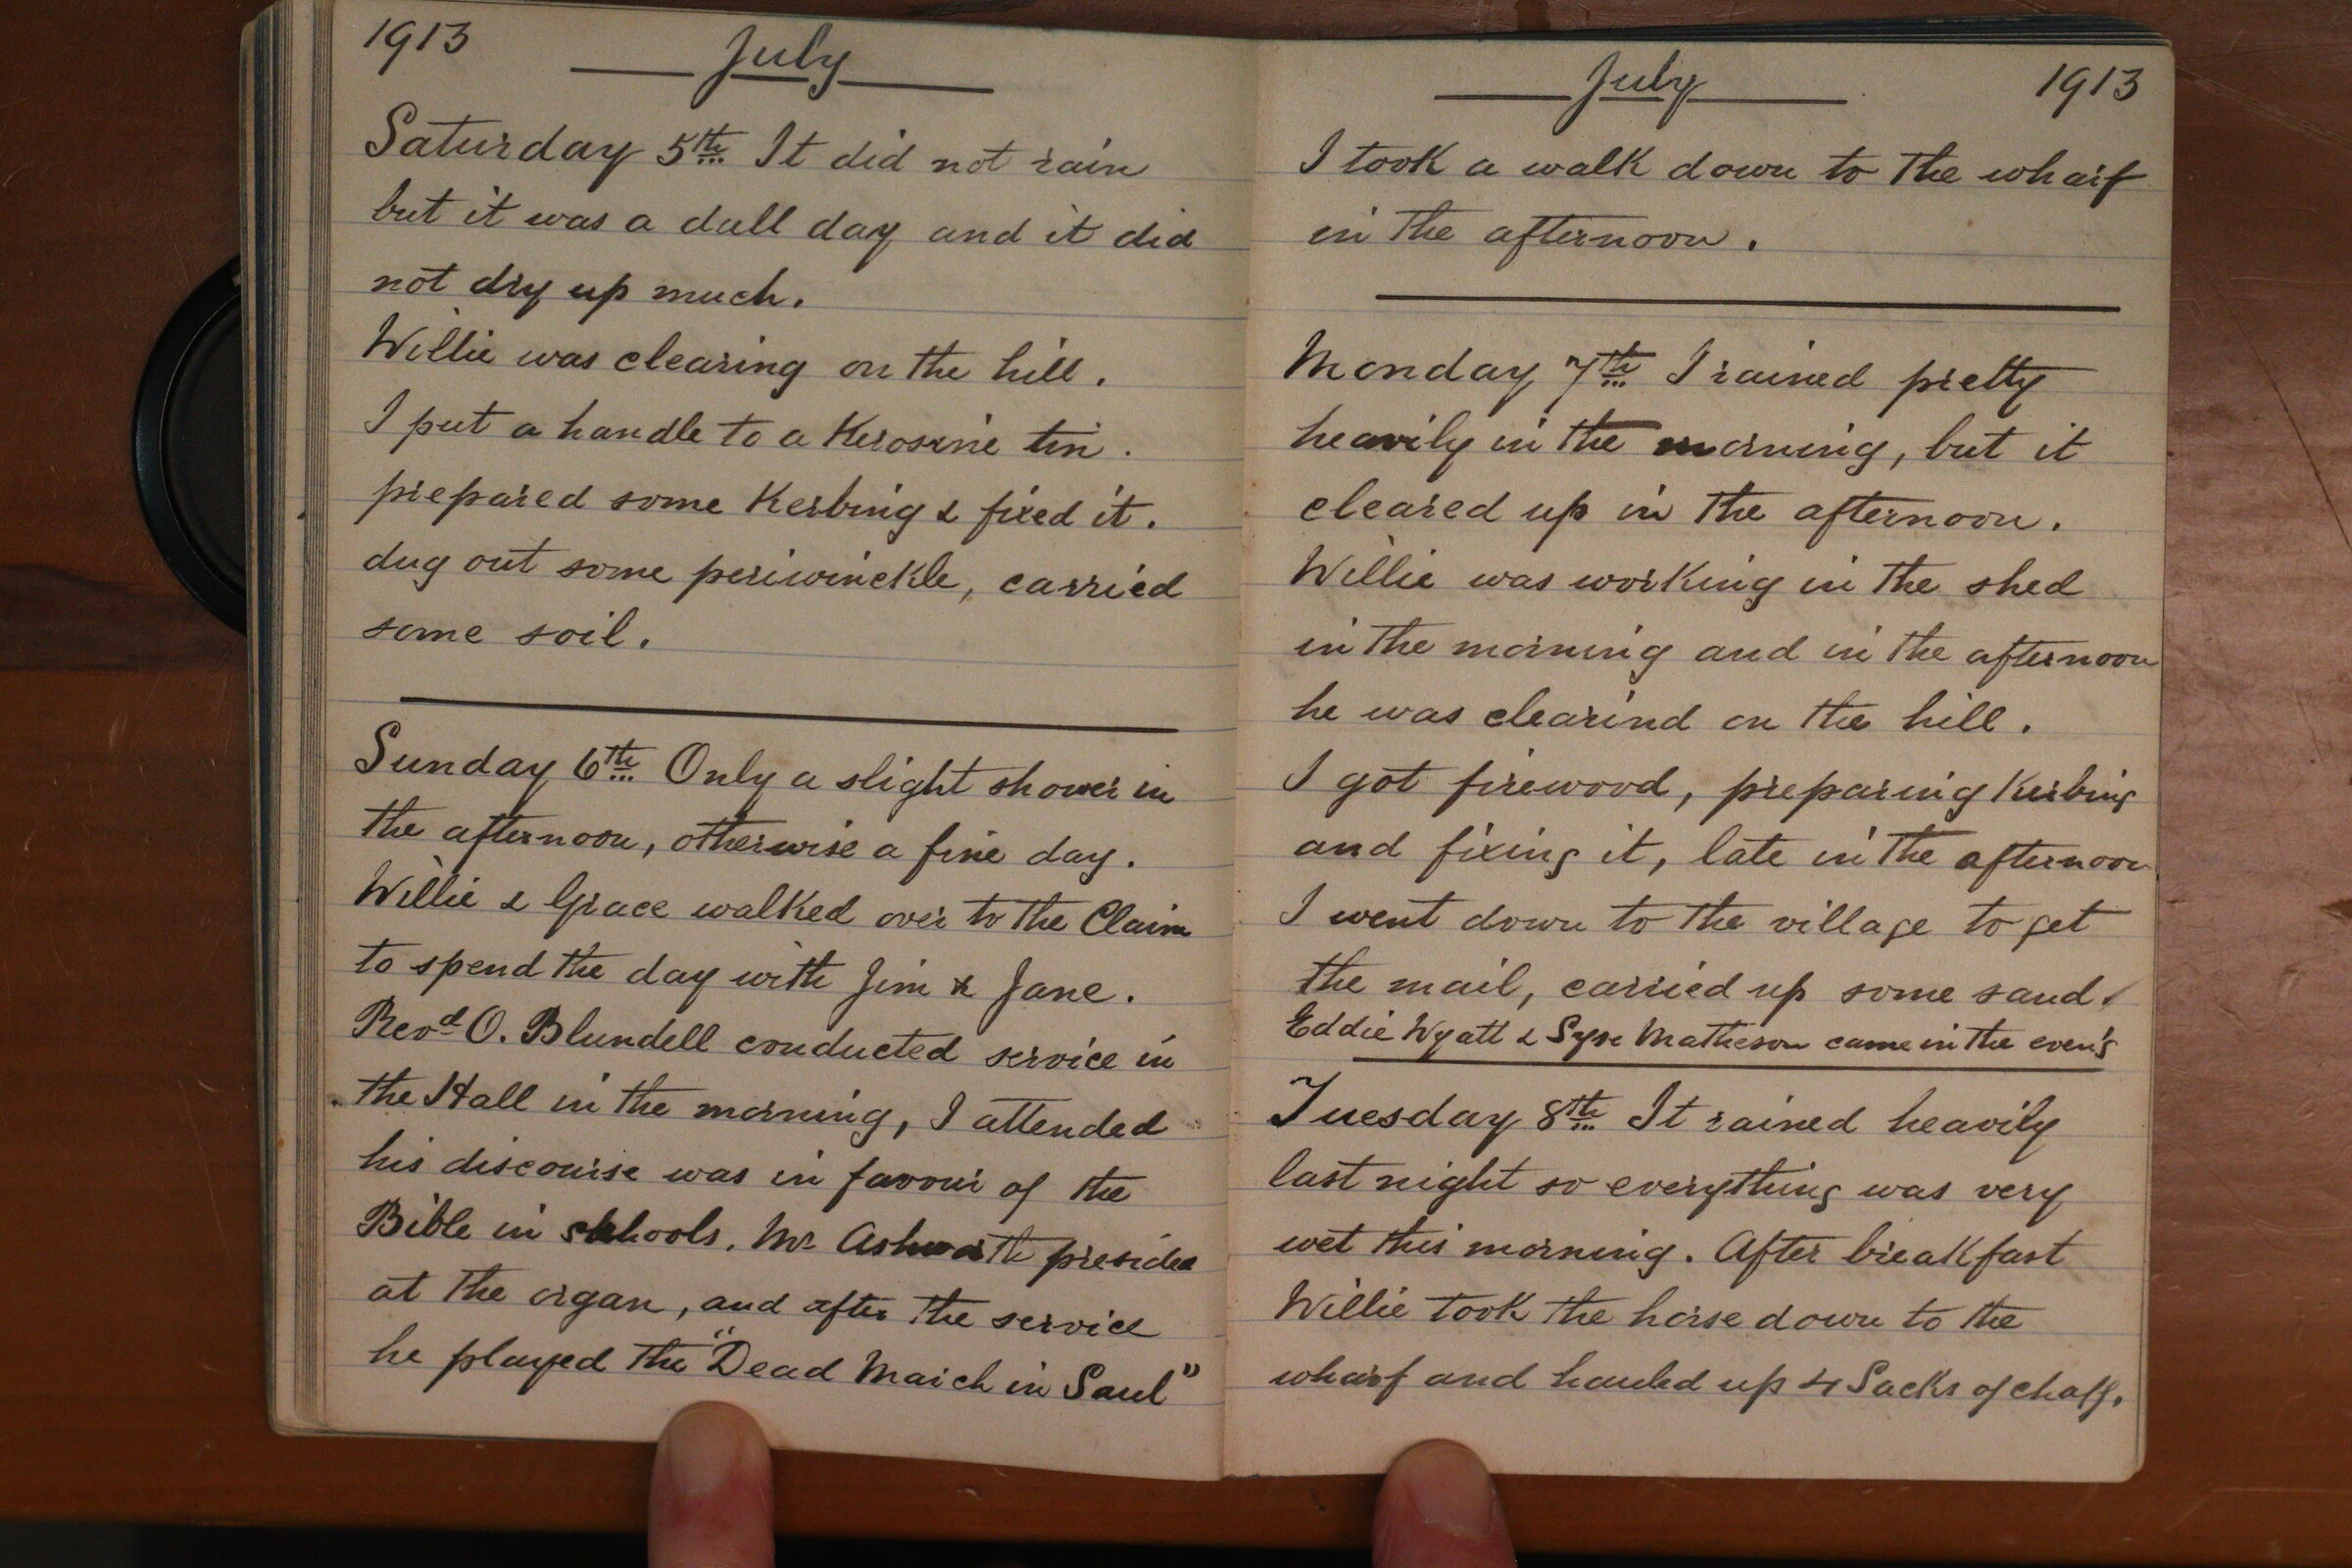 1913
July
Saturday 5th It did not rain
but it was a dull day and it did
not dry up much.
Willie was clearing on the hill.
I put a handle to a Kerosine tin.
prepared some Kerbing & fixed it.
dug out some periwinckle, carried
some soil.
Sunday 6th Only a slight shower in
the afternoon, otherwise a fine day.
Willie & Grace walked over to the Claim
to spend the day with Jim & Jane.
Revd O. Blundell conducted service in
the Hall in the morning, I attended
his discourse was in favour of the
Bible in schools. Mr Ashworth presided
at the organ, and after the service
he played the "Dead March in Saul"
July 1913
I took a walk down to the wharf
in the afternoon.
Monday 7th I rained pretty
heavily in the morning, but it
cleared up in the afternoon.
Willie was working in the shed
in the morning and in the afternoon
he was clearind on the hill.
I got firewood, preparing Kerbing
and fixing it, late in the afternoon
I went down to the village to get
the mail, carried up some sand.
Eddie Wyatt & Matheson came in the even'g
Tuesday 8th It rained heavily
last night so everything was very
wet this morning. After breakfast
Willie took the horse down to the
wharf and hauled up 4 Sacks of chaff.